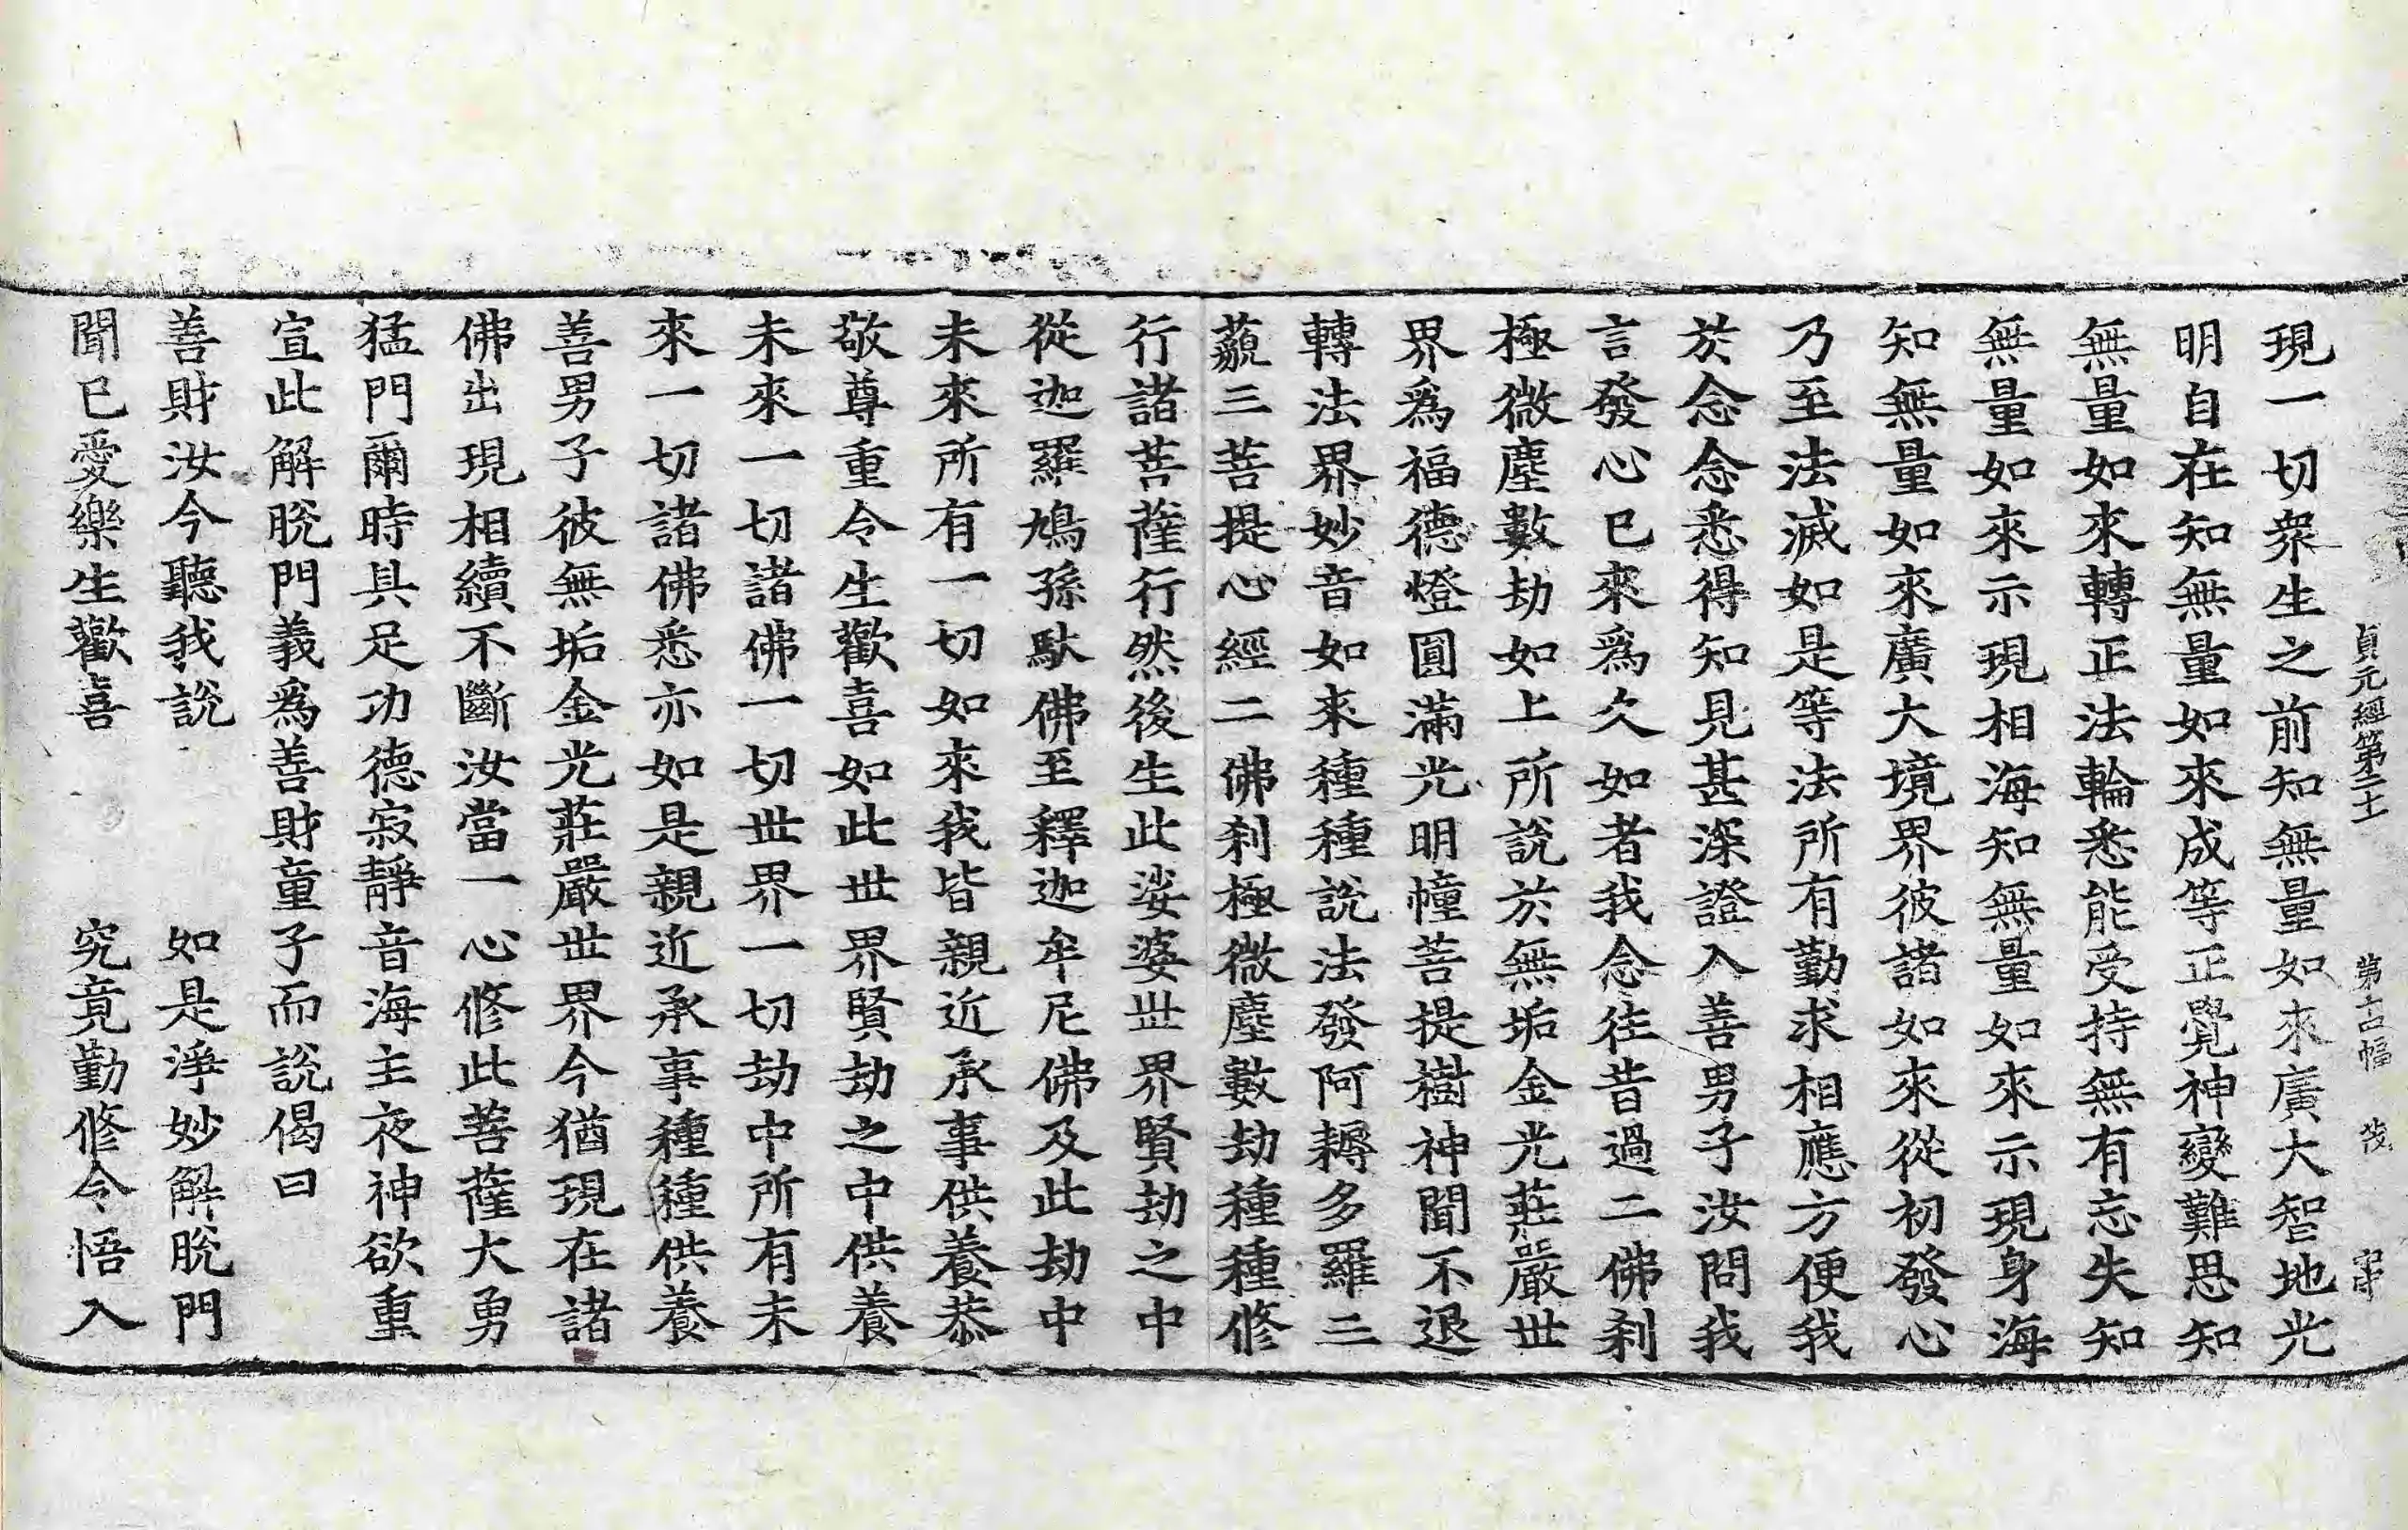 貞元經第二十 第十四幅 茂
現一切衆生之前知無量如來廣大智地光
明自在知無量如來成等正覺神變難思知
無量如來轉正法輪悉能受持無有忘失知
無量如來示現相海知無量如來示現身海
知無量如來廣大境界彼諸如來從初發心
乃至法滅如是等法所有勤求相應方便我
於念念悉得知見甚深證入善男子汝問我
言發心已來爲久如者我念往昔過二佛刹
極微塵數劫如上所說於無垢金光莊嚴世
界爲福德燈圓滿光明幢菩提樹神聞不退
轉法界妙音如來種種說法發阿耨多羅三
藐三菩提心經二佛刹極微塵數劫種種修
行諸菩薩行然後生此娑婆世界賢劫之中
從迦羅鳩孫馱佛至釋迦牟尼佛及此劫中
未來所有一切如來我皆親近承事供養恭
敬尊重令生歡喜如此世界賢劫之中供養
未來一切諸佛一切世界一切劫中所有未
來一切諸佛悉亦如是親近承事種種供養
善男子彼無垢金光莊嚴世界今猶現在諸
佛出現相續不斷汝當一心修此菩薩大勇
猛門爾時具足功德寂靜音海主夜神欲重
宣此解脫門義爲善財童子而說偈曰
善財汝今聽我說 如是淨妙解脫門
聞已愛樂生歡喜 究竟勤修令悟入